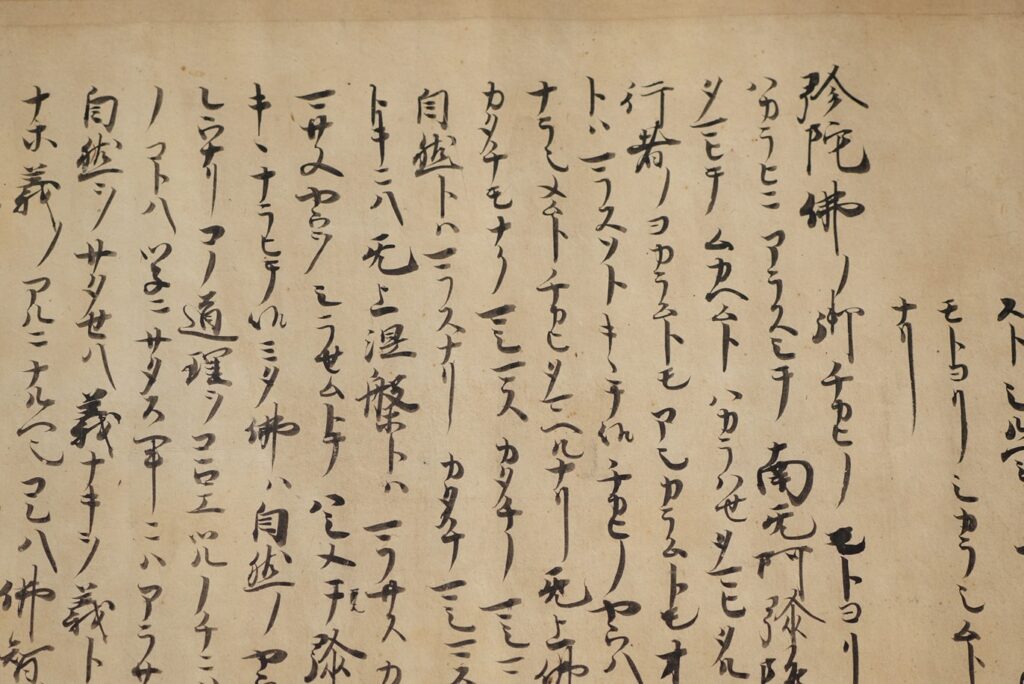 ストシルヘシ
モトヨリシカラシムト
ナリ
弥陀佛ノ御チカヒノモトヨリ
ハカラヒニアラスシテ南无阿弥陀
タマヒテムカヘムトハカラハセタマヒタル
行者ノヨカラムトモアシカラムトモオ
トハマフスソトキヽテ候チカヒノヤウハ
ナラシメムトチカヒタマヘルナリ无上佛
カタチモナクマシマスカタチノマシマ
自然トハマフスナリカタチマシマス
トキニハ无上涅槃トハマフサスカ
マサヌヤウヲシラセムトテハシメテ弥
キヽナラヒテ候ミタ佛ハ自然ノヤウ
レウナリコノ道理ヲコヽロエツルノチニ
ノコトハツネニサタスヘキニハアラサ
自然ヲサタセハ義ナキヲ義ト
ナホ義ノアルニナルヘシコレハ佛智